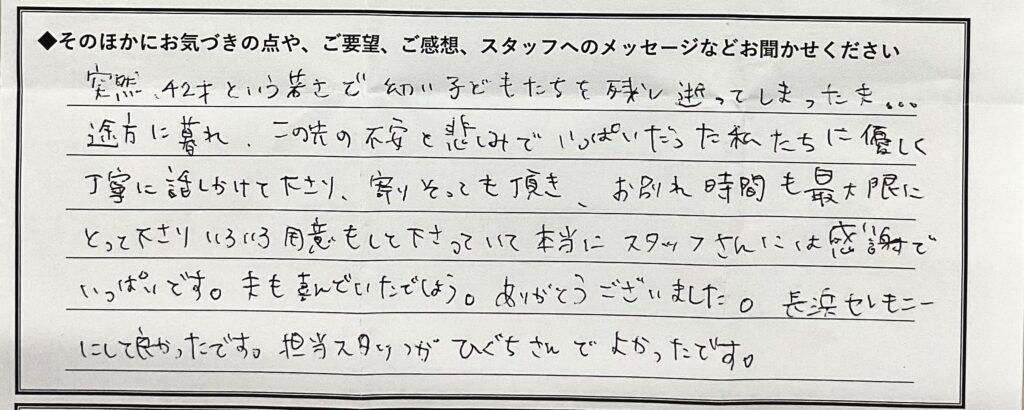 ◆そのほかにお気づきの点や、ご要望、ご感想、スタッフへのメッセージなどお聞かせください
突然、42才という若さで幼い子どもたちを残し逝ってしまった夫…
途方に暮れ、この先の不安と悲しみでいっぱいだった私たちに優しく
丁寧に話しかけて下さり、寄りそっても頂き、お別れ時間も最大限に
とって下さりいろいろ用意もして下さっていて本当にスタッフさんには感謝で
いっぱいです。夫も喜んでいたでしょう。ありがとうございました。長浜セレモニー
にして良かったです。担当スタッフがひぐちさんでよかったです。